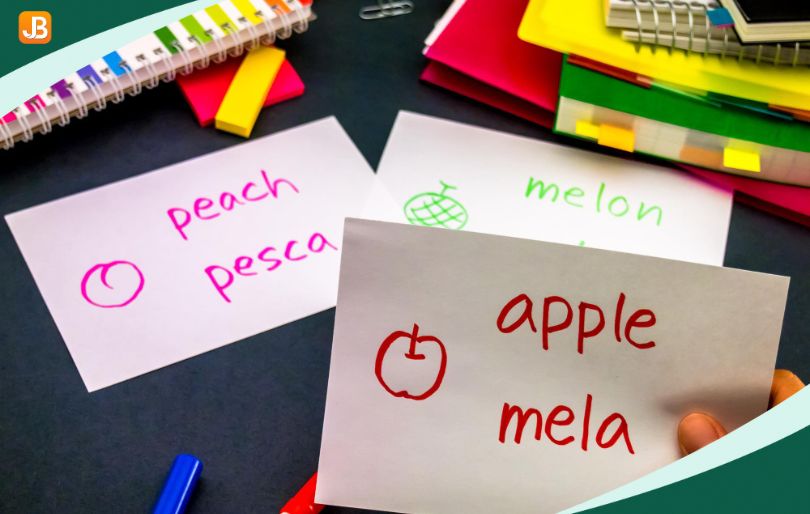 JB
peach
pesca
melon
apple
mela